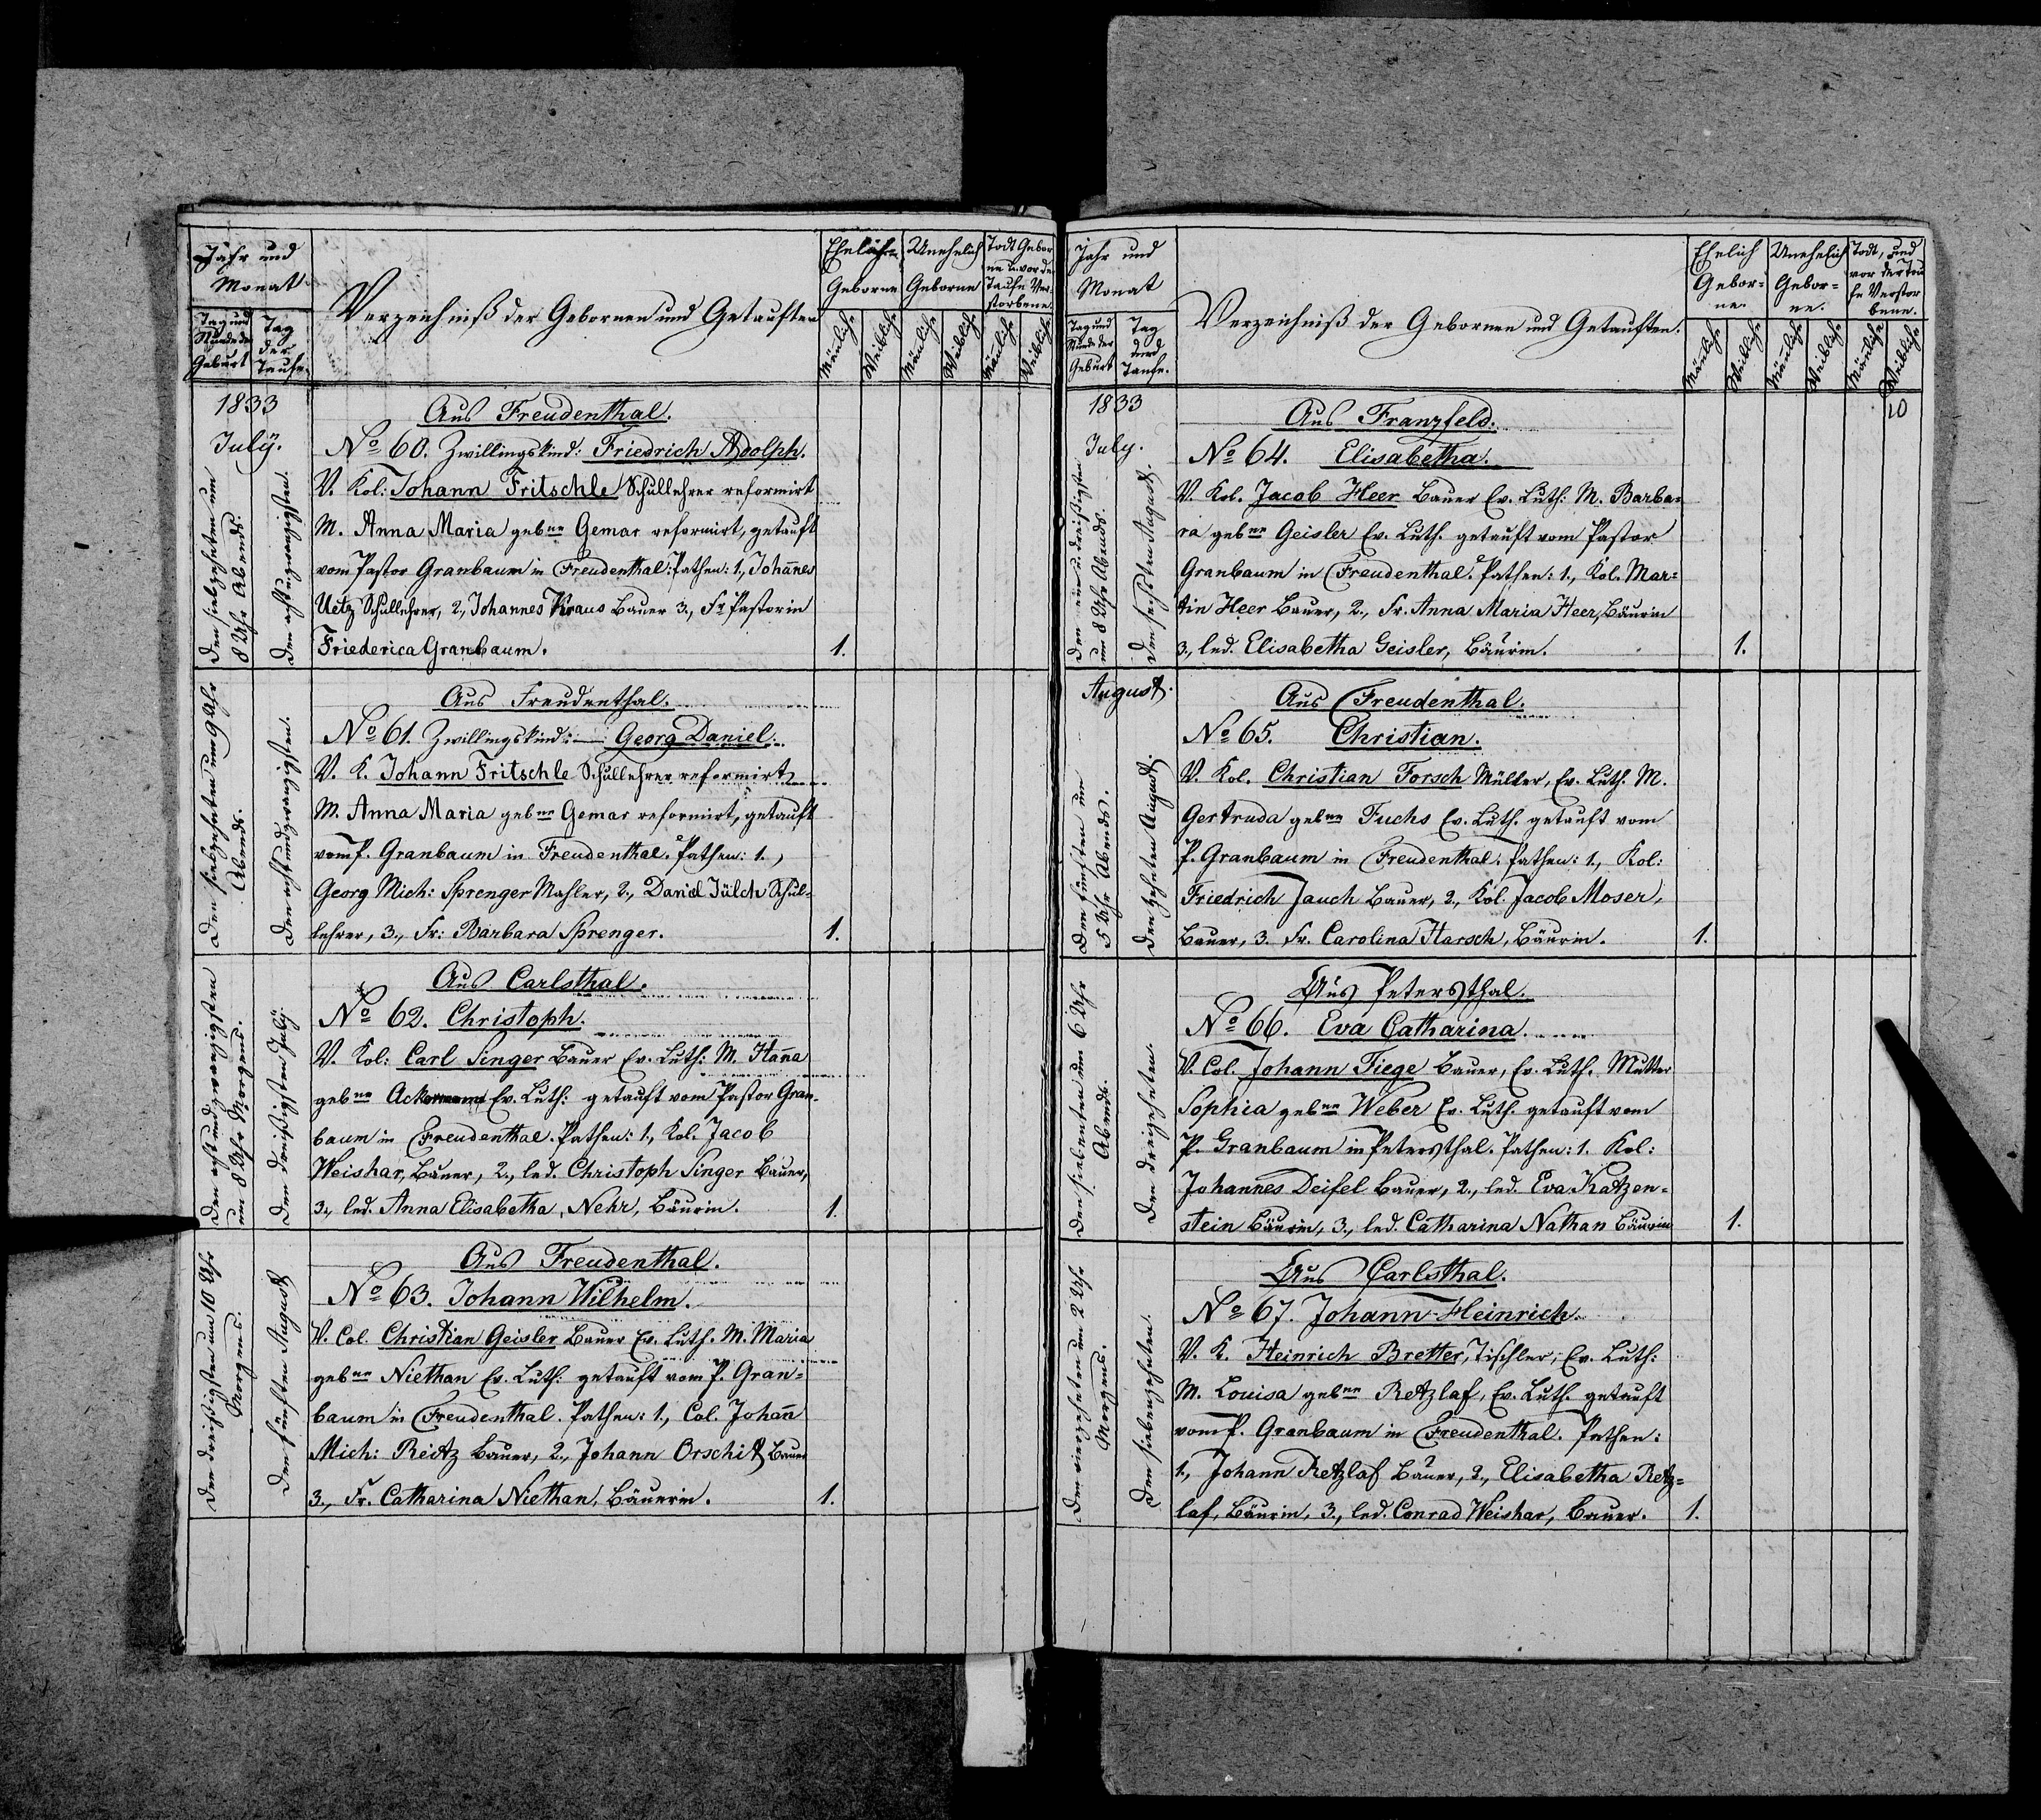 Jahr und
Monat
Tag und
Stunde der
Geburt
Tag
der
Taufe.
Verzeichniß der Gebornen und Getauften
Ehelich
Geborne
Unehelich
Geborne
Todt Gebor
ne u. vor der
Taufe Ver-
storbene.
Mänliche
Weibliche
Mänliche
Weibliche
Mänliche
Weibliche
1833
July.
Den siebzehnten um
8 Uhr Abends.
Den achtundzwanzigsten.
Aus Freudenthal.
No 60. Zwillingskind: Friedrich Adolph.
V. Kol: Johann Fritschle Schullehrer reformirt
M. Anna Maria gebne Gemar reformirt, getauft
vom Pastor Granbaum in Freudenthal. Pathen: 1., Johannes
Uetz Schullehrer, 2., Johannes Kraus Bauer 3., Fr. Pastorin
Friederica Granbaum. 1.
Den siebzehnten um 9 Uhr
Abends.
Den achtundzwanzigsten.
Aus Freudenthal.
No 61. Zwillingskind: Georg Daniel.
V. K. Johann Fritschle Schullehrer reformirt
M. Anna Maria gebne Gemar reformirt, getauft
vom P. Granbaum in Freudenthal. Pathen: 1.,
Georg Mich: Sprenger Mahler, 2., Daniel Jülch Schul-
lehrer, 3., Fr: Barbara Sprenger. 1.
Den achtundzwanzigsten
um 8 Uhr Morgens.
Den dreißigsten July.
Aus Carlsthal.
No 62. Christoph.
V. Kol: Carl Singer Bauer Ev. Luth: M. Hanna
gebne Ackermann Ev. Luth: getauft vom Pastor Gran-
baum in Freudenthal. Pathen: 1., Kol. Jacob
Weishar, Bauer, 2., led. Christoph Singer Bauer,
3., led. Anna Elisabetha, Nehr, Bäurin. 1.
Den dreißigsten um 10 Uhr
Morgens.
Den fünften August
Aus Freudenthal.
No 63. Johann Wilhelm.
V. Col. Christian Geisler Bauer Ev. Luth. M. Maria
gebne Niethan Ev. Luth: getauft vom P. Gran-
baum in Freudenthal. Pathen: 1., Col. Johann
Mich: Reitz Bauer, 2., Johann Orschit Bauer
3., Fr. Catharina Niethan, Bäuerin. 1.
Jahr und
Monat
Tag und
Stunde der
Geburt
Tag
der
Taufe.
Verzeichniß der Gebornen und Getauften.
Ehelich
Gebor-
ne.
Unehelich
Gebor-
ne.
Todt, und
vor der Tau
fe Verstor
bene.
Mänliche
Weibliche
Mänliche
Weibliche
Mänliche
Weibliche
10
1833
July.
Den ein u. dreißigsten
um 8 Uhr Abends.
Den sechsten August.
Aus Franzfeld.
No 64. Elisabetha.
V. Kol. Jacob Heer Bauer Ev. Luth: M. Barba-
ra gebne Geisler Ev. Luth. getauft vom Pastor
Granbaum in Freudenthal. Pathen: 1., Kol. Mar-
tin Heer Bauer, 2., Fr. Anna Maria Heer, Bäurin
3., led. Elisabetha Geisler, Bäurin. 1.
August.
Den fünften um
5 Uhr Abends.
Den zehnten August.
Aus Freudenthal.
No 65. Christian.
V. Kol. Christian Forsch Müller, Ev. Luth. M.
Gertruda gebne Fuchs Ev. Luth. getauft vom
P. Granbaum in Freudenthal. Pathen: 1., Kol:
Friedrich Jauch Bauer, 2., Kol. Jacob Moser,
Bauer, 3. Fr. Carolina Harsch, Bäurin. 1.
Den siebenten um 6 Uhr
Abends.
Den dreizehnten.
Aus Petersthal.
No 66. Eva Catharina.
V. Col. Johann Tiege Bauer, Ev. Luth. Mutter
Sophia gebne Weber Ev. Luth. getauft vom
P. Granbaum in Petersthal. Pathen: 1. Kol:
Johannes Deifel Bauer, 2., led. Eva Katzen-
stein Bäurin, 3., led. Catharina Nathan Bäurin 1.
Den vierzehnten um 2 Uhr
Morgens.
Den siebenzehnten.
Aus Carlsthal.
No 67. Johann Heinrich.
V. K. Heinrich Bretter, Tischler, Ev. Luth:
M. Louisa gebne Retzlaf, Ev. Luth. getauft
vom P. Granbaum in Freudenthal. Pathen:
1., Johann Retzlaf Bauer, 2., Elisabetha Retz-
laf, Bäurin, 3., led. Conrad Weishar, Bauer. 1.